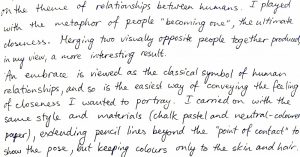 on the theme of relationships between humans. I played
with the metaphor of people "becoming one", the ultimate
closeness. Merging two visually opposite people together produced,
in my view, a more interesting result.
An embrace is viewed as the classical symbol of human
relationships, and so is the easiest way of conveying the feeling
of closeness I wanted to portray. I carried on with the
same style and materials (chalk pastel and neutral-coloured
paper), extending pencil lines beyond the "point of contact" to
show the pose, but keeping colours only to the skin and hair.